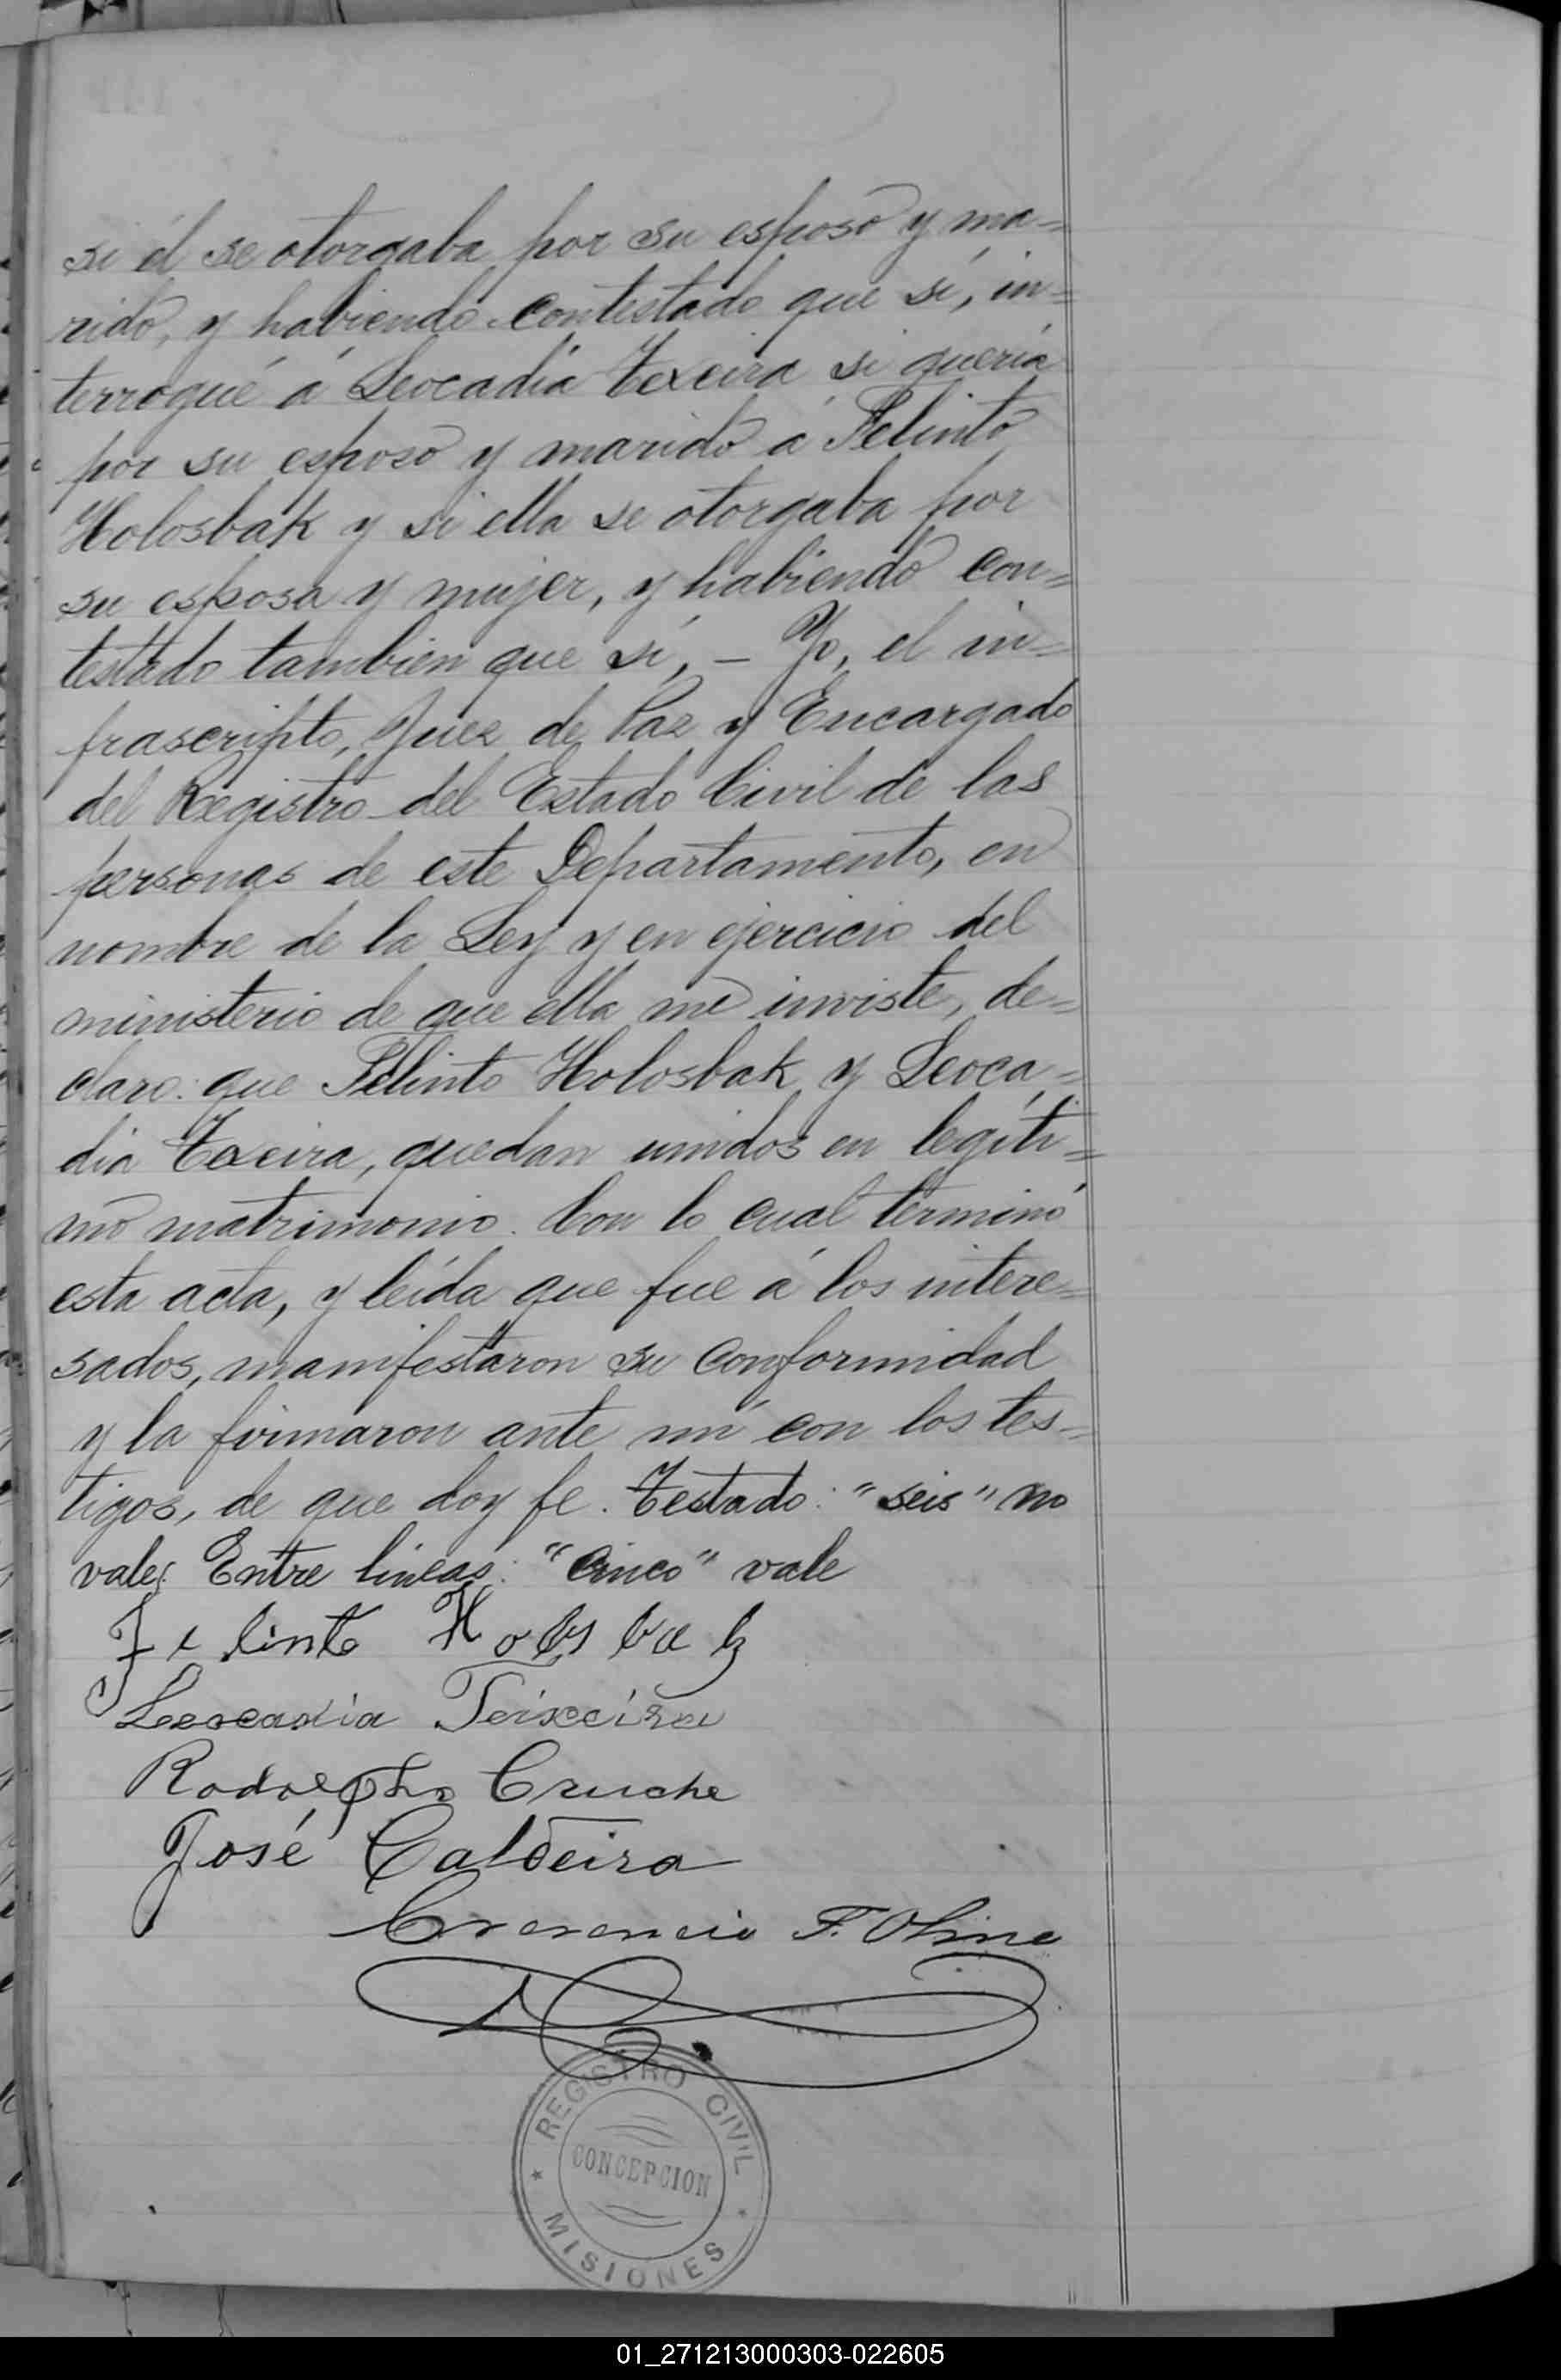 si él se otorgaba por su esposo y ma=
rido, y habiendo contestado que sí, in=
terrogué á Leocadia Texeira si quería
por su esposo y marido á Felinto
Holosbak y si ella se otorgaba por
su esposa y mujer, y habiendo con=
testado tambien que sí, – Yo, el in=
frascripto, Juez de Paz y Encargado
del Registro del Estado Civil de las
personas de este Departamento, en
nombre de la Ley y en ejercicio del
ministerio de que ella me inviste, de=
claro: que Felinto Holosbak y Leoca=
dia Texeira, quedan unidos en legíti=
mo matrimonio. Con lo cual terminó
esta acta, y leída que fue á los intere=
sados, manifestaron su conformidad
y la firmaron ante mí con los tes=
tigos, de que doy fe. Testado: "seis" no
vale. Entre lineas: "cinco" vale
Felinto
Leocadia Teixeira
Rodolpho Cruche
José Caldeira
Cresencio F.
REGISTRO CIVIL
CONCEPCION
MISIONES
01_271213000303-022605